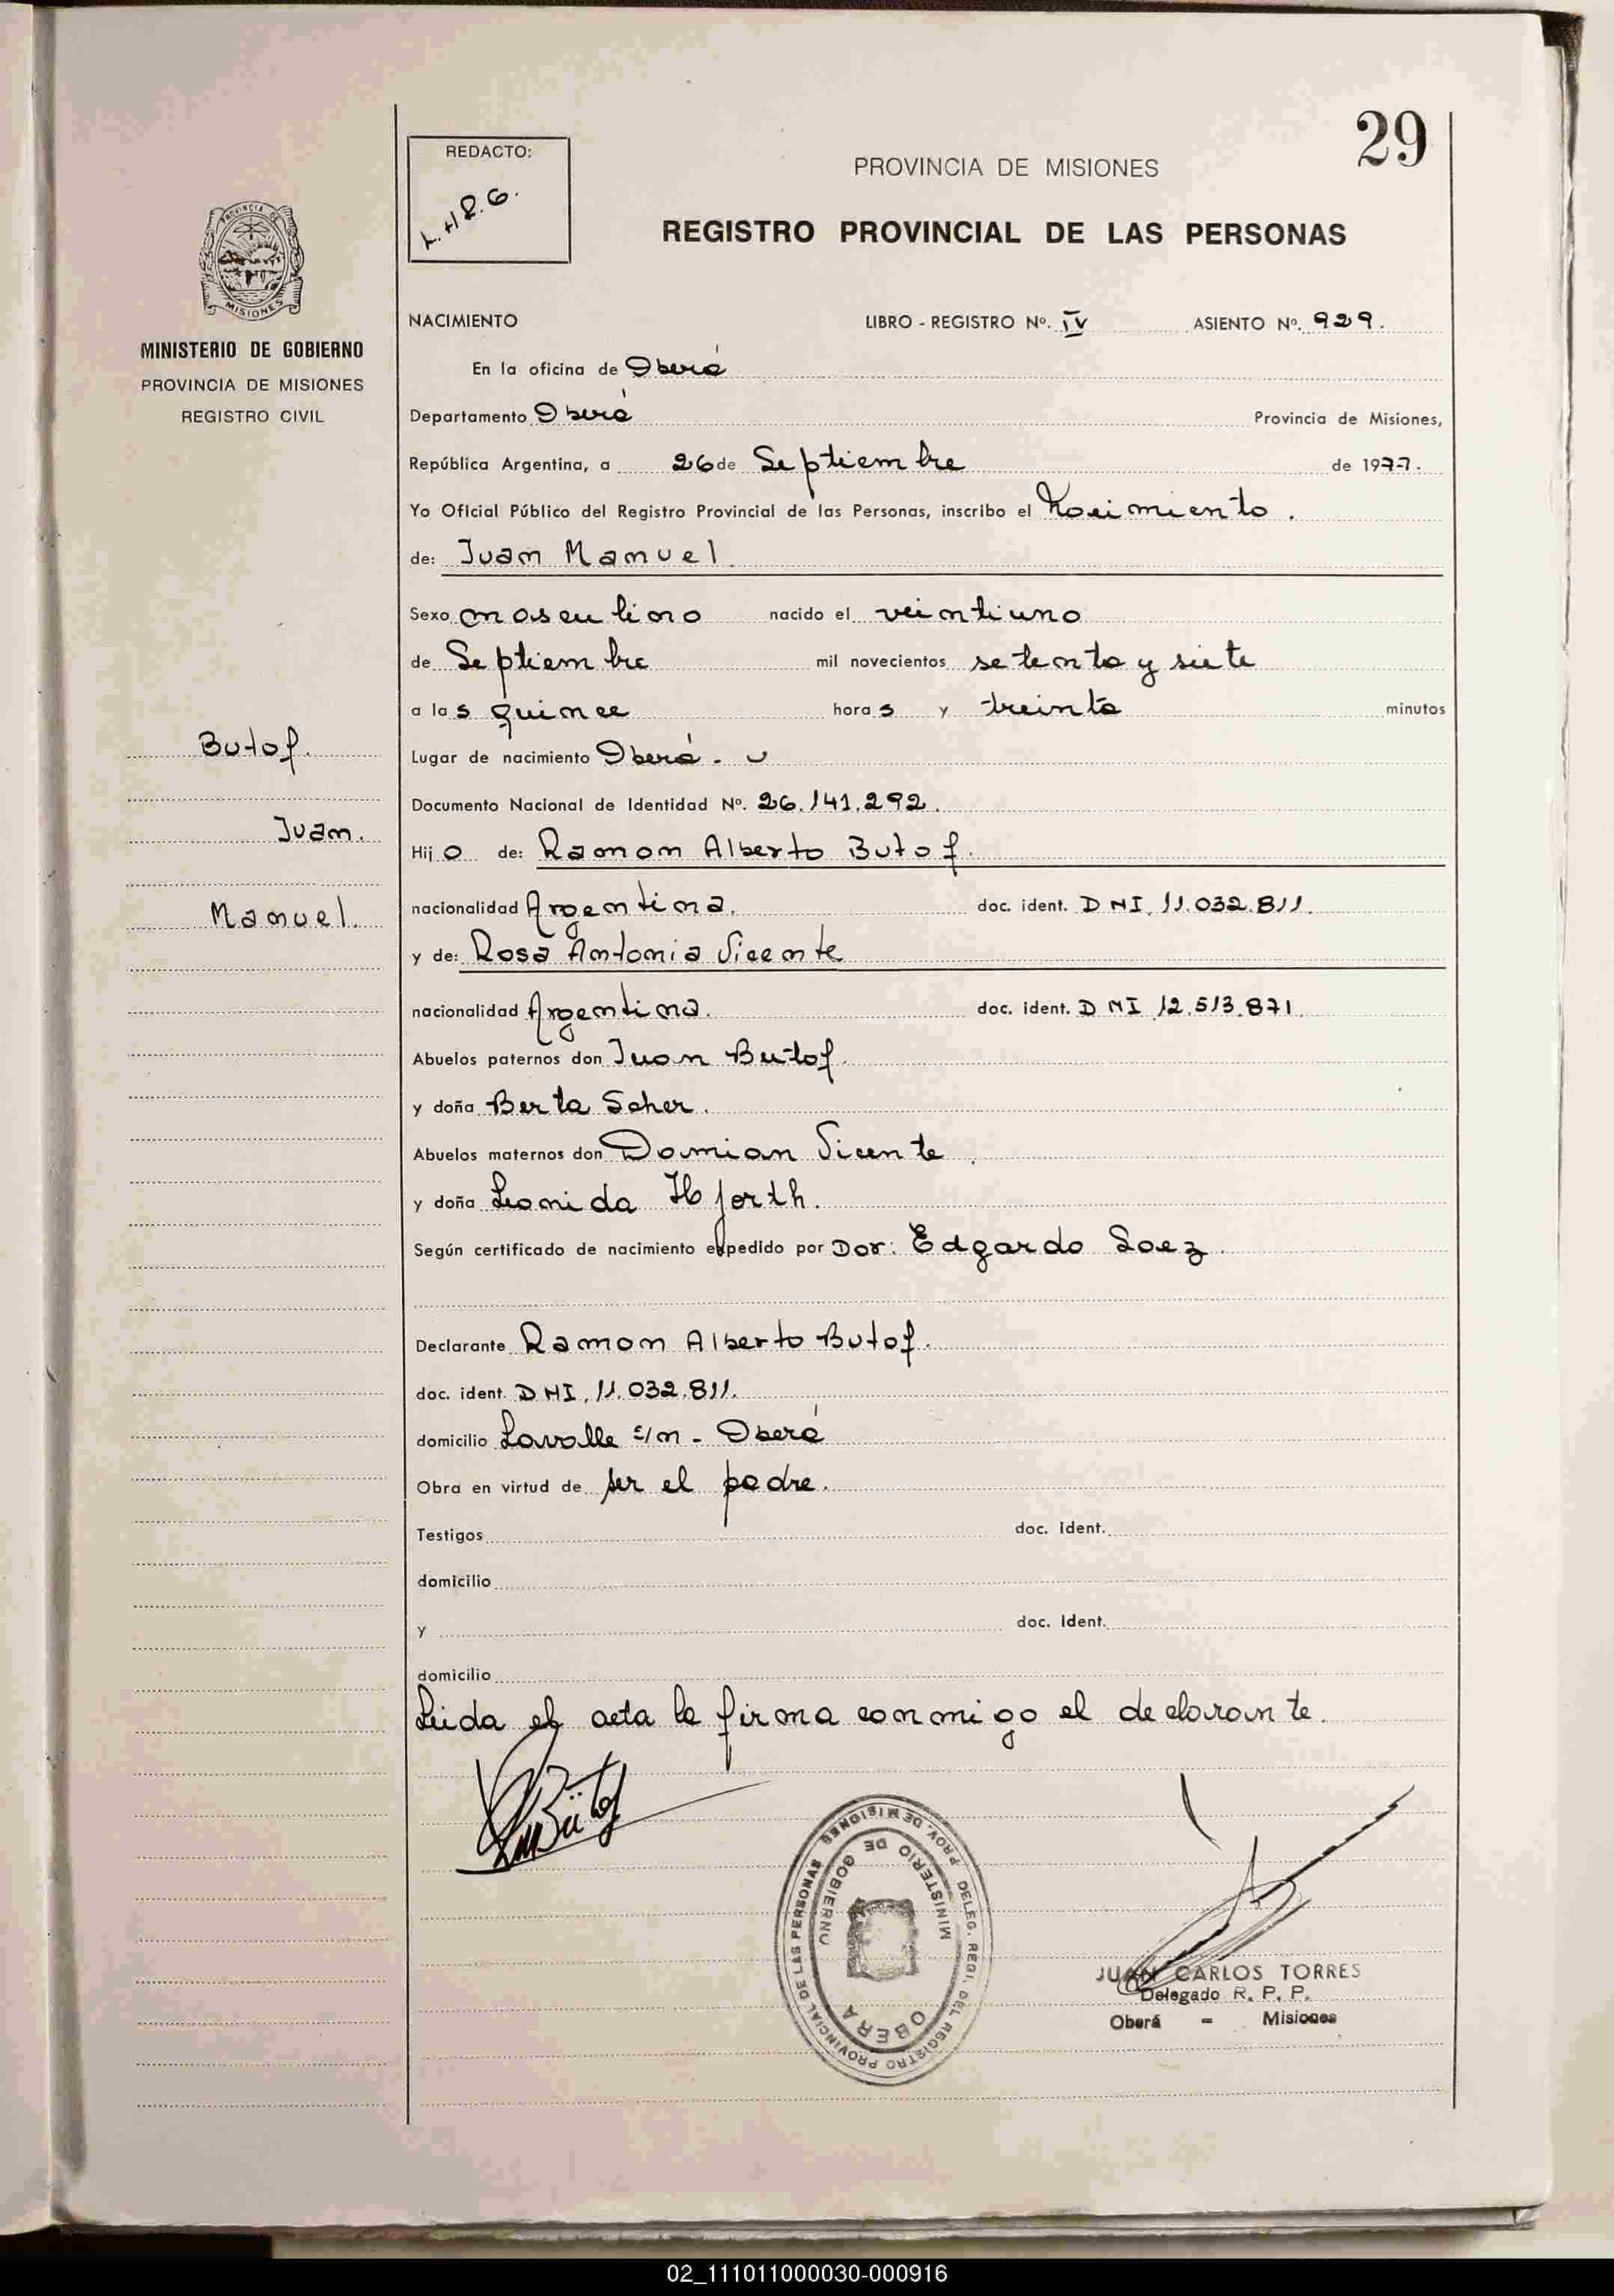 29
REDACTO:
PROVINCIA DE MISIONES
REGISTRO PROVINCIAL DE LAS PERSONAS
PROVINCIA DE
MISIONES
MINISTERIO DE GOBIERNO
PROVINCIA DE MISIONES
REGISTRO CIVIL
NACIMIENTO LIBRO - REGISTRO Nº. IV ASIENTO Nº. 929.
En la oficina de Oberá
Departamento Oberá Provincia de Misiones,
República Argentina, a 26 de Septiembre de 1977.
Yo Oficial Público del Registro Provincial de las Personas, inscribo el Nacimiento.
de: Juan Manuel
Sexo masculino nacido el veintiuno
de Septiembre mil novecientos setenta y siete
a las quince horas y treinta minutos
Butof.
Lugar de nacimiento Oberá.
Documento Nacional de Identidad Nº. 26.141.292.
Juan.
Hijo de: Ramon Alberto Butof.
Manuel.
nacionalidad Argentina. doc. ident. DNI. 11.032.811.
y de: Rosa Antonia Vicente
nacionalidad Argentina. doc. ident. DNI 12.513.871.
Abuelos paternos don Juan Butof.
y doña Berta Scher.
Abuelos maternos don Damian Vicente.
y doña Leonida Hjorth.
Según certificado de nacimiento expedido por Dor: Edgardo Soez.
Declarante Ramon Alberto Butof.
doc. ident. DNI. 11.032.811.
domicilio Lavalle s/n - Oberá
Obra en virtud de ser el padre.
Testigos doc. Ident.
domicilio
y doc. Ident.
domicilio
Leida el acta la firma conmigo el declarante.
DELEG. REGI. DEL REGISTRO PROVINCIAL DE LAS PERSONAS PROV. DE MISIONES
MINISTERIO DE GOBIERNO
OBERA
JUAN CARLOS TORRES
Delegado R. P. P.
Oberá - Misiones
02_111011000030-000916